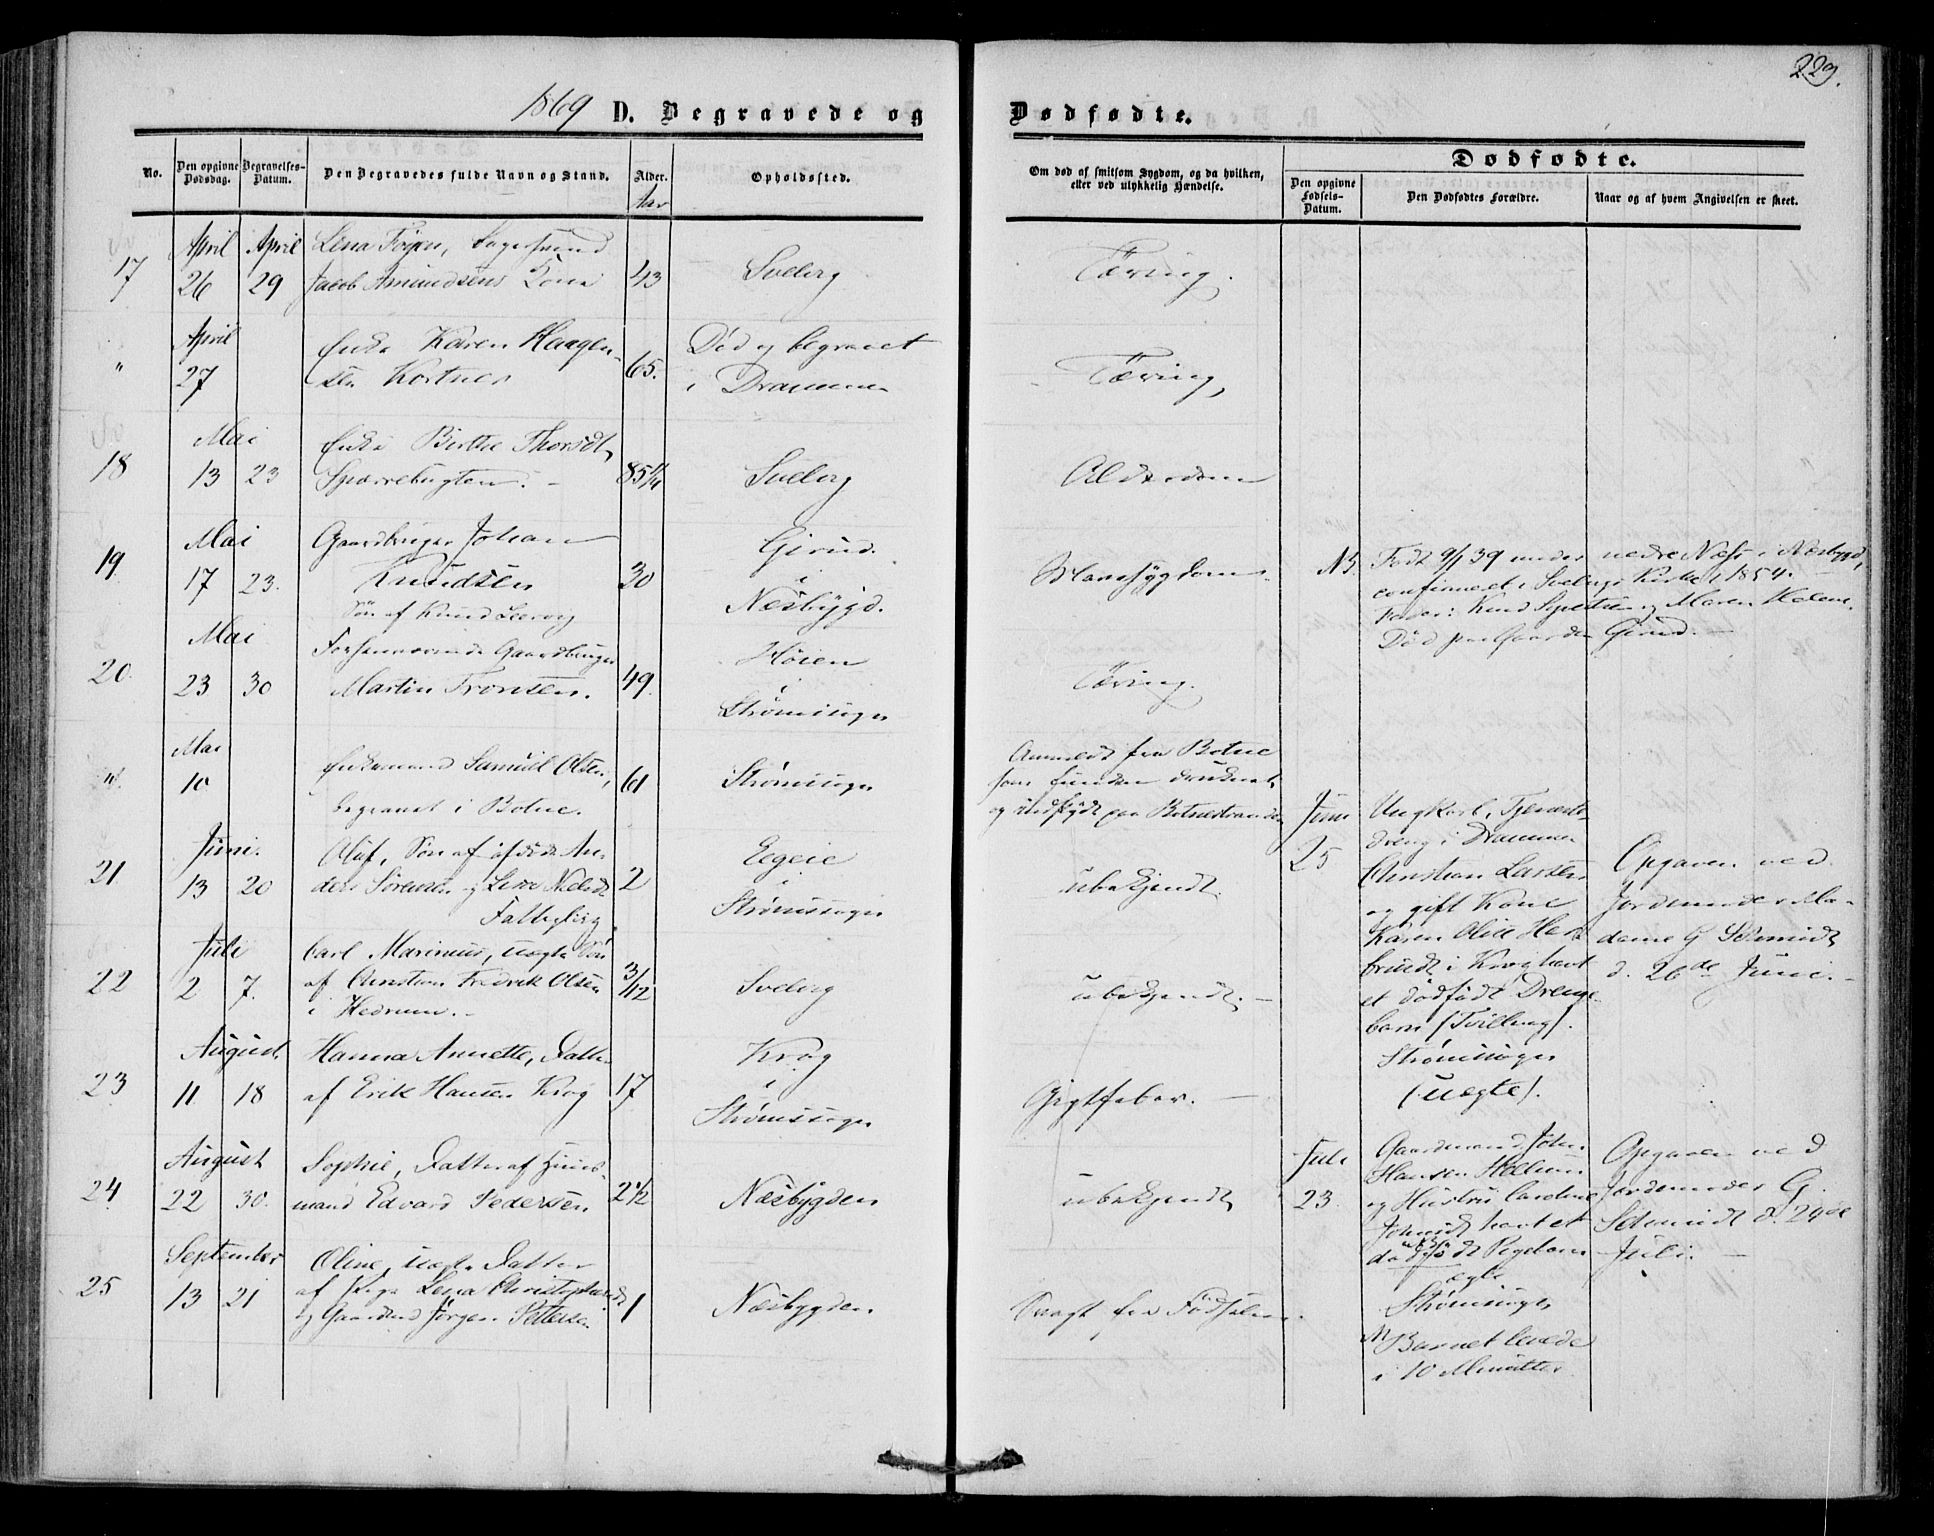 229.
1869 D. Begravede og Dødfødte.
No.
Den opgivne Dødsdag.
Begravelses-Datum.
Den Begravedes fulde Navn og Stand.
Alder.
Aar
Opholdssted.
Om død af smitsom Sygdom, og da hvilken,
eller ved ulykkelig Hændelse.
Dødfødte.
Den opgivne Fødsels-Datum.
Den Dødfødtes Forældre.
Naar og af hvem Angivelsen er skeet.
17
April 26
April 29
Lena
Jacob Amundsens Kone
43
Svelvig
Tæring.
"
April 27
Enke Karen Haagen-
sen Kortnes
65.
Død og begravet
i Drammen
Tæring,
18
Mai
13 23
Enke Birthe Thorsdt,
Sparrebugten.
85 1/4
Svelvig
Alderdom
19
Mai
17 23.
Gaardbruger Johan
Knudsen
Søn af Knud
30
Girud.
i
Næsbygd.
NB.
Født 9/1 39 under nedre Næss i Næsbygd,
confirmeret i Svelvigs Kirke i 1854.
Fader: Knud og Maren Helene.
Død paa Gaarden Girud.
20.
Mai
23 30
Forhenværende Gaardbruger
Martin Tronsen.
49.
Høien
i
Strømssogn
Tæring.
"
Mai
10
Enkemand Samuel Olsen,
begravet i Botne.
61
Strømssogn
Anmeldt fra Botne
som funden druknet
og paa Botnestranden
21.
Juni.
13 20
Oluf, Søn af afdøde An-
ders Sørensen og Lena Nielsdt
2
Eegeie
i
Strømssogn
ubekjendt.
Juni
25
Ungkarl, Tjeneste-
dreng i Drammen
Christian Larsen
og gift Kone
Karen Oline
i Krog havt
et dødfødt Drenge-
barn (Tvilling).
Strømssogn
(uægte).
Opgaven ved
Jordmoder Ma-
dame G Schmidt
d. 26de Juni.
22
Juli
2 7.
Carl Marinius, uægte Søn
af Christian Fredrik Olsen
i Hedrum.
3/12
Svelvig
ubekjendt.
23
August
11 18
Hanna Annette, Datter
af Erik Hansen Krog
17
Krog
i
Strømssogn
Gigtfeber.
24
August
22 30.
Sophie, Datter af Huus-
mand Edvard Pedersen
2 1/2
Næsbygden
ubekjendt
Juli
23.
Gaardmand John
Hansen Hellum
og Hustru Caroline
havt et
dødfødt Pigebarn
ægte
Strømssogn
Barnet levede
i 10 Minutter
Opgaven ved
Jordemoder G.
Schmidt d. 24de
Juli.
25
September
13 21
Oline, uægte Datter
af Pige Lena
og Jørgen Pettersen
1
Næsbygden
Svagt fra Fødselen.